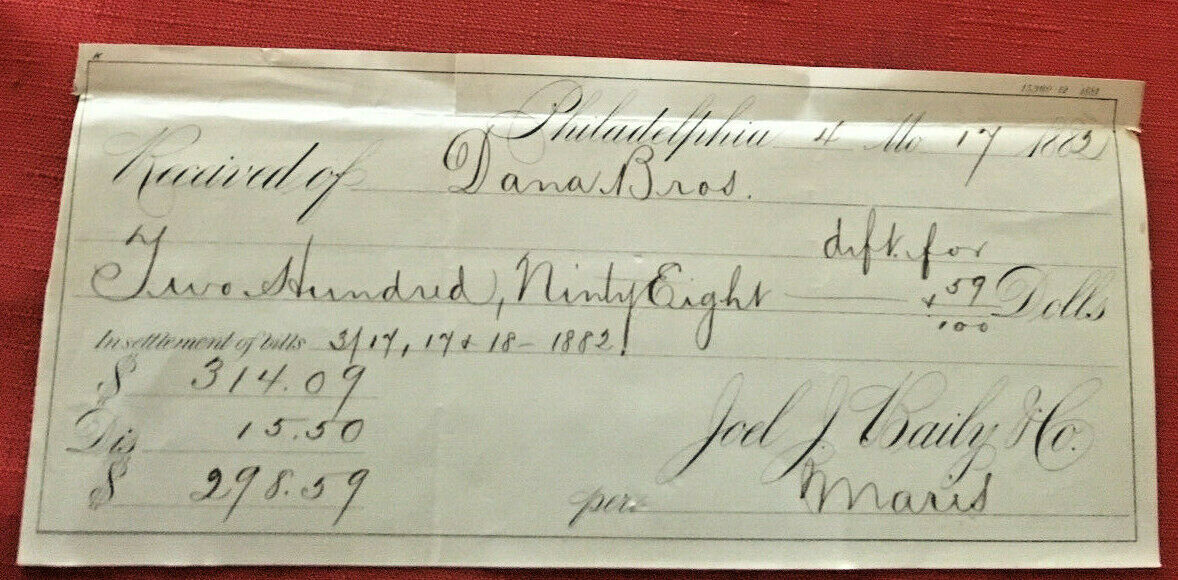 K
Philadelphia 4 Mo 17 1882
Received of Dana Bros.
dift. for
Two Hundred, Ninty Eight 59/100 Dolls
In settlement of bills 3/17, 17 & 18 - 1882.
$ 314.09
Dis 15.50
$ 298.59
Joel J. Baily & Co.
per Maris